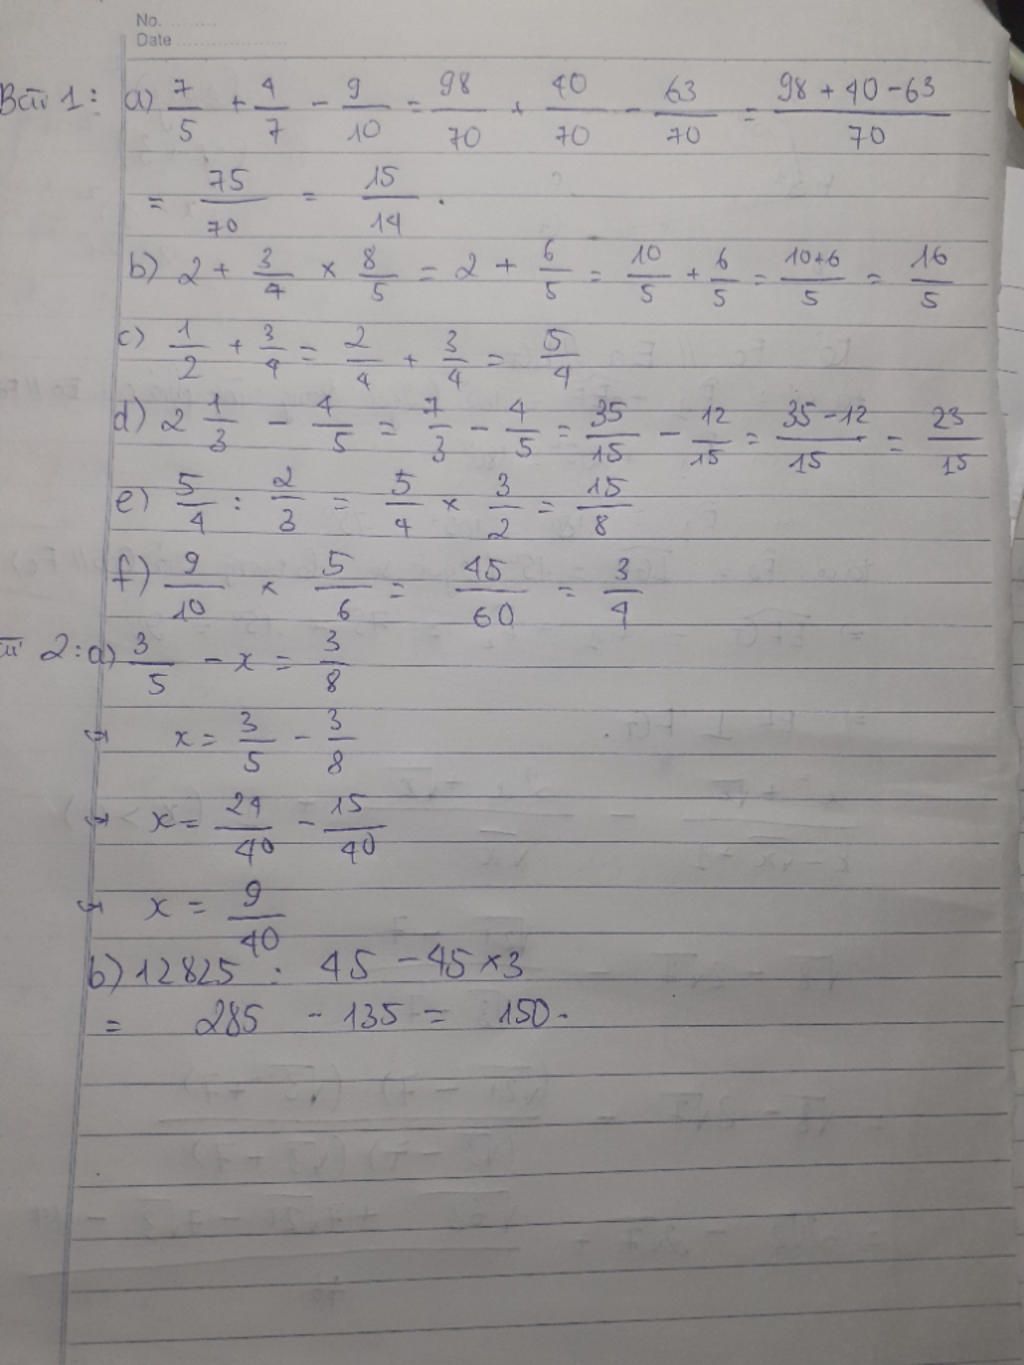 No. ..........
Date ....................
Bài 1: a) 7/5 + 4/7 - 9/10 = 98/70 + 40/70 - 63/70 = (98 + 40 - 63)/70
= 75/70 = 15/14 .
b) 2 + 3/4 × 8/5 = 2 + 6/5 = 10/5 + 6/5 = (10+6)/5 = 16/5
c) 1/2 + 3/4 = 2/4 + 3/4 = 5/4
d) 2 1/3 - 4/5 = 7/3 - 4/5 = 35/15 - 12/15 = (35 - 12)/15 = 23/15
e) 5/4 : 2/3 = 5/4 × 3/2 = 15/8
f) 9/10 × 5/6 = 45/60 = 3/4
2: a) 3/5 - x = 3/8
x = 3/5 - 3/8
x = 24/40 - 15/40
x = 9/40
b) 12825 : 45 - 45 × 3
= 285 - 135 = 150.